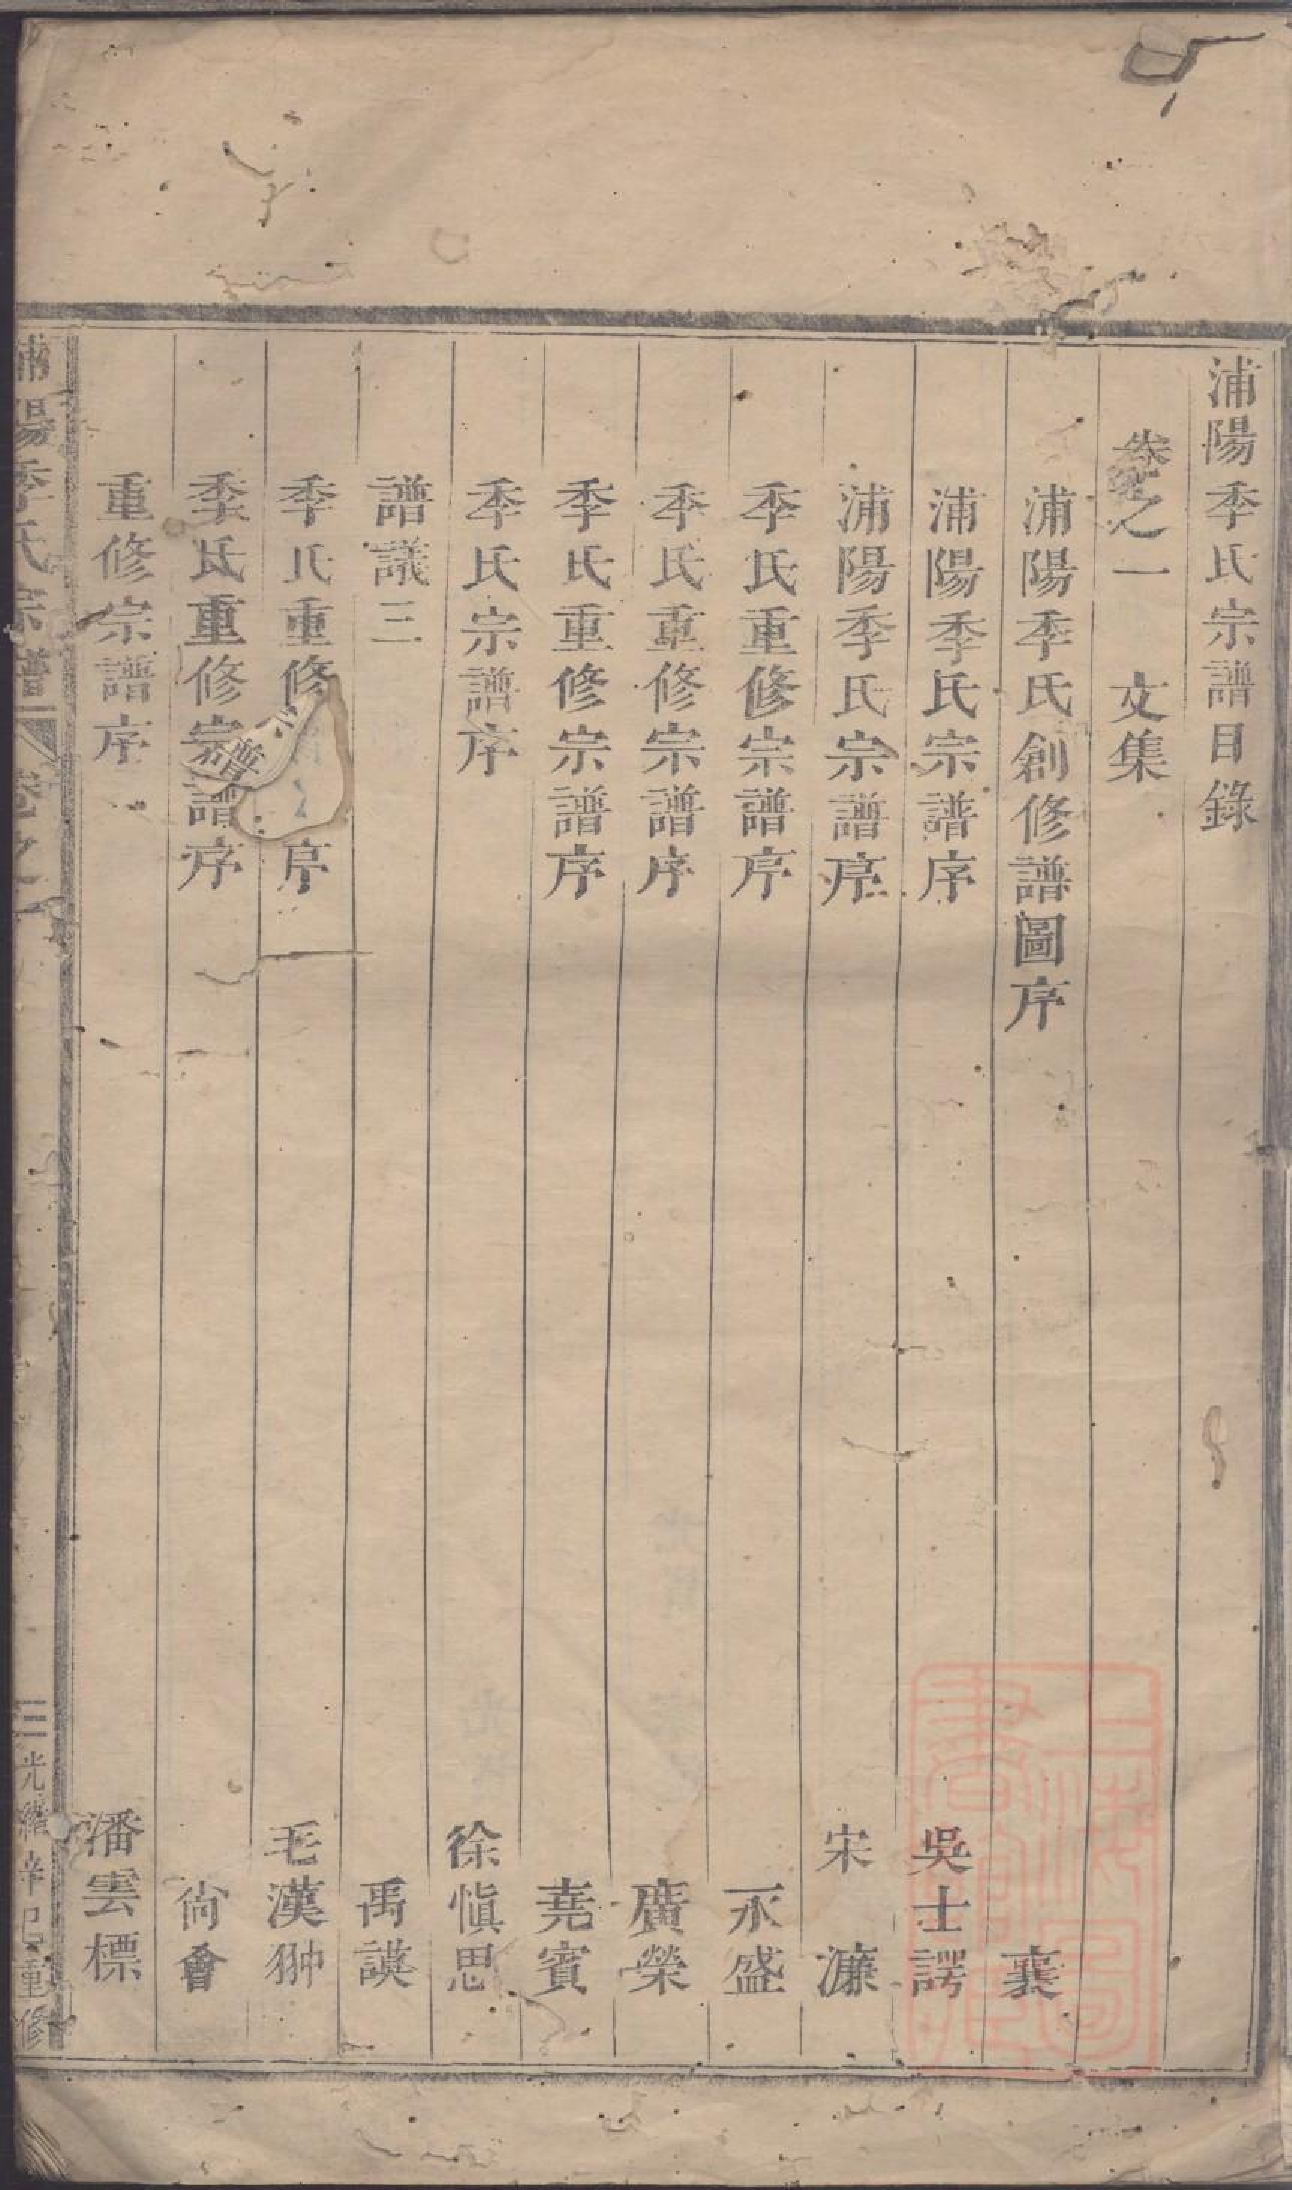 浦陽季氏宗譜目錄
卷之一　文集
浦陽季氏創修譜圖序　襄
浦陽季氏宗譜序　吳士諤
浦陽季氏宗譜序　宋濂
季氏重修宗譜序　永盛
季氏重修宗譜序　廣榮
季氏重修宗譜序　堯賓
季氏宗譜序　徐愼思
譜議三　禹謨
季氏重修序　毛漢翀
季氏重修宗譜序　尙會
重修宗譜序　潘雲標
浦陽季氏宗譜　卷之一　三　光緒辛巳重修
上海圖書館藏